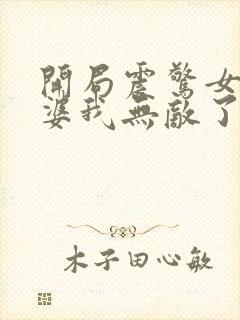 開局震驚女
婆我無敵了
木子田心敏